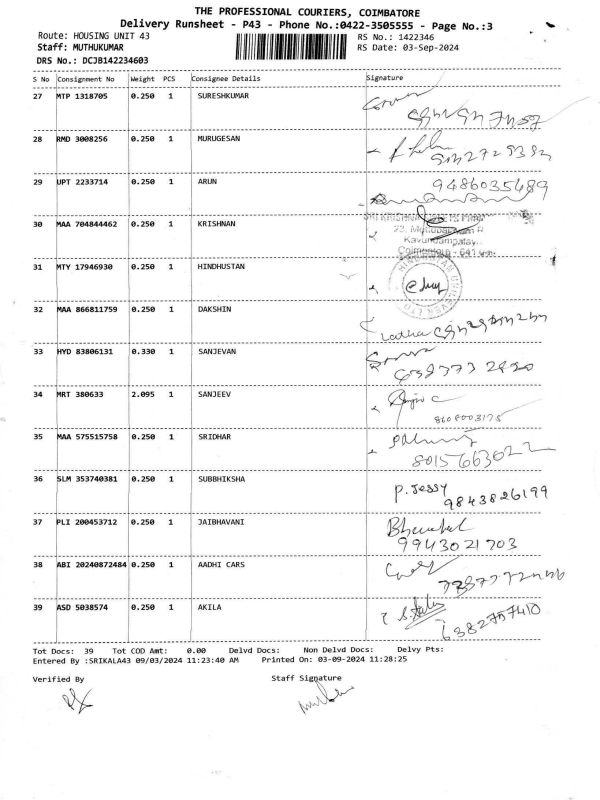 THE PROFESSIONAL COURIERS, COIMBATORE
Delivery Runsheet - P43 - Phone No.:0422-3505555 - Page No.:3
Route: HOUSING UNIT 43
RS No.: 1422346
Staff: MUTHUKUMAR
RS Date: 03-Sep-2024
DRS No.: DCJB142234603
S No Consignment No Weight PCS Consignee Details Signature
27 MTP 1318705 0.250 1 SURESHKUMAR
28 RMD 3008256 0.250 1 MURUGESAN
29 UPT 2233714 0.250 1 ARUN 9486035489
30 MAA 704844462 0.250 1 KRISHNAN
31 MTY 17946930 0.250 1 HINDHUSTAN
32 MAA 866811759 0.250 1 DAKSHIN
Latha
33 HYD 83806131 0.330 1 SANJEVAN
34 MRT 380633 2.095 1 SANJEEV
8608003175
35 MAA 575515758 0.250 1 SRIDHAR
8015663022
36 SLM 353740381 0.250 1 SUBBHIKSHA P. Jessy
9843826199
37 PLI 200453712 0.250 1 JAIBHAVANI
9943021703
38 ABI 20240872484 0.250 1 AADHI CARS
39 ASD 5038574 0.250 1 AKILA
6382757410
Tot Docs: 39 Tot COD Amt: 0.00 Delvd Docs: Non Delvd Docs: Delvy Pts:
Entered By :SRIKALA43 09/03/2024 11:23:40 AM Printed On: 03-09-2024 11:28:25
Verified By Staff Signature